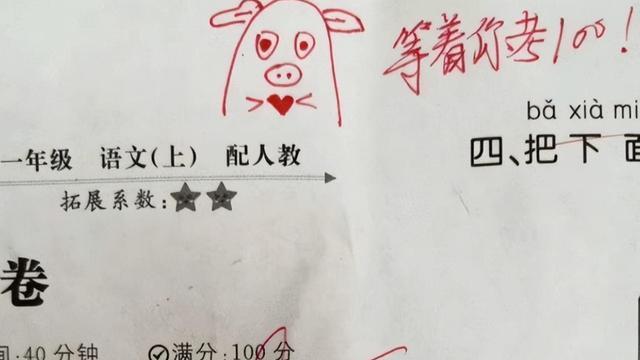 等着你考100！
bǎ xià mi
四、把下面
一年级 语文(上) 配人教
拓展系数：
卷
间：40分钟 满分：100分